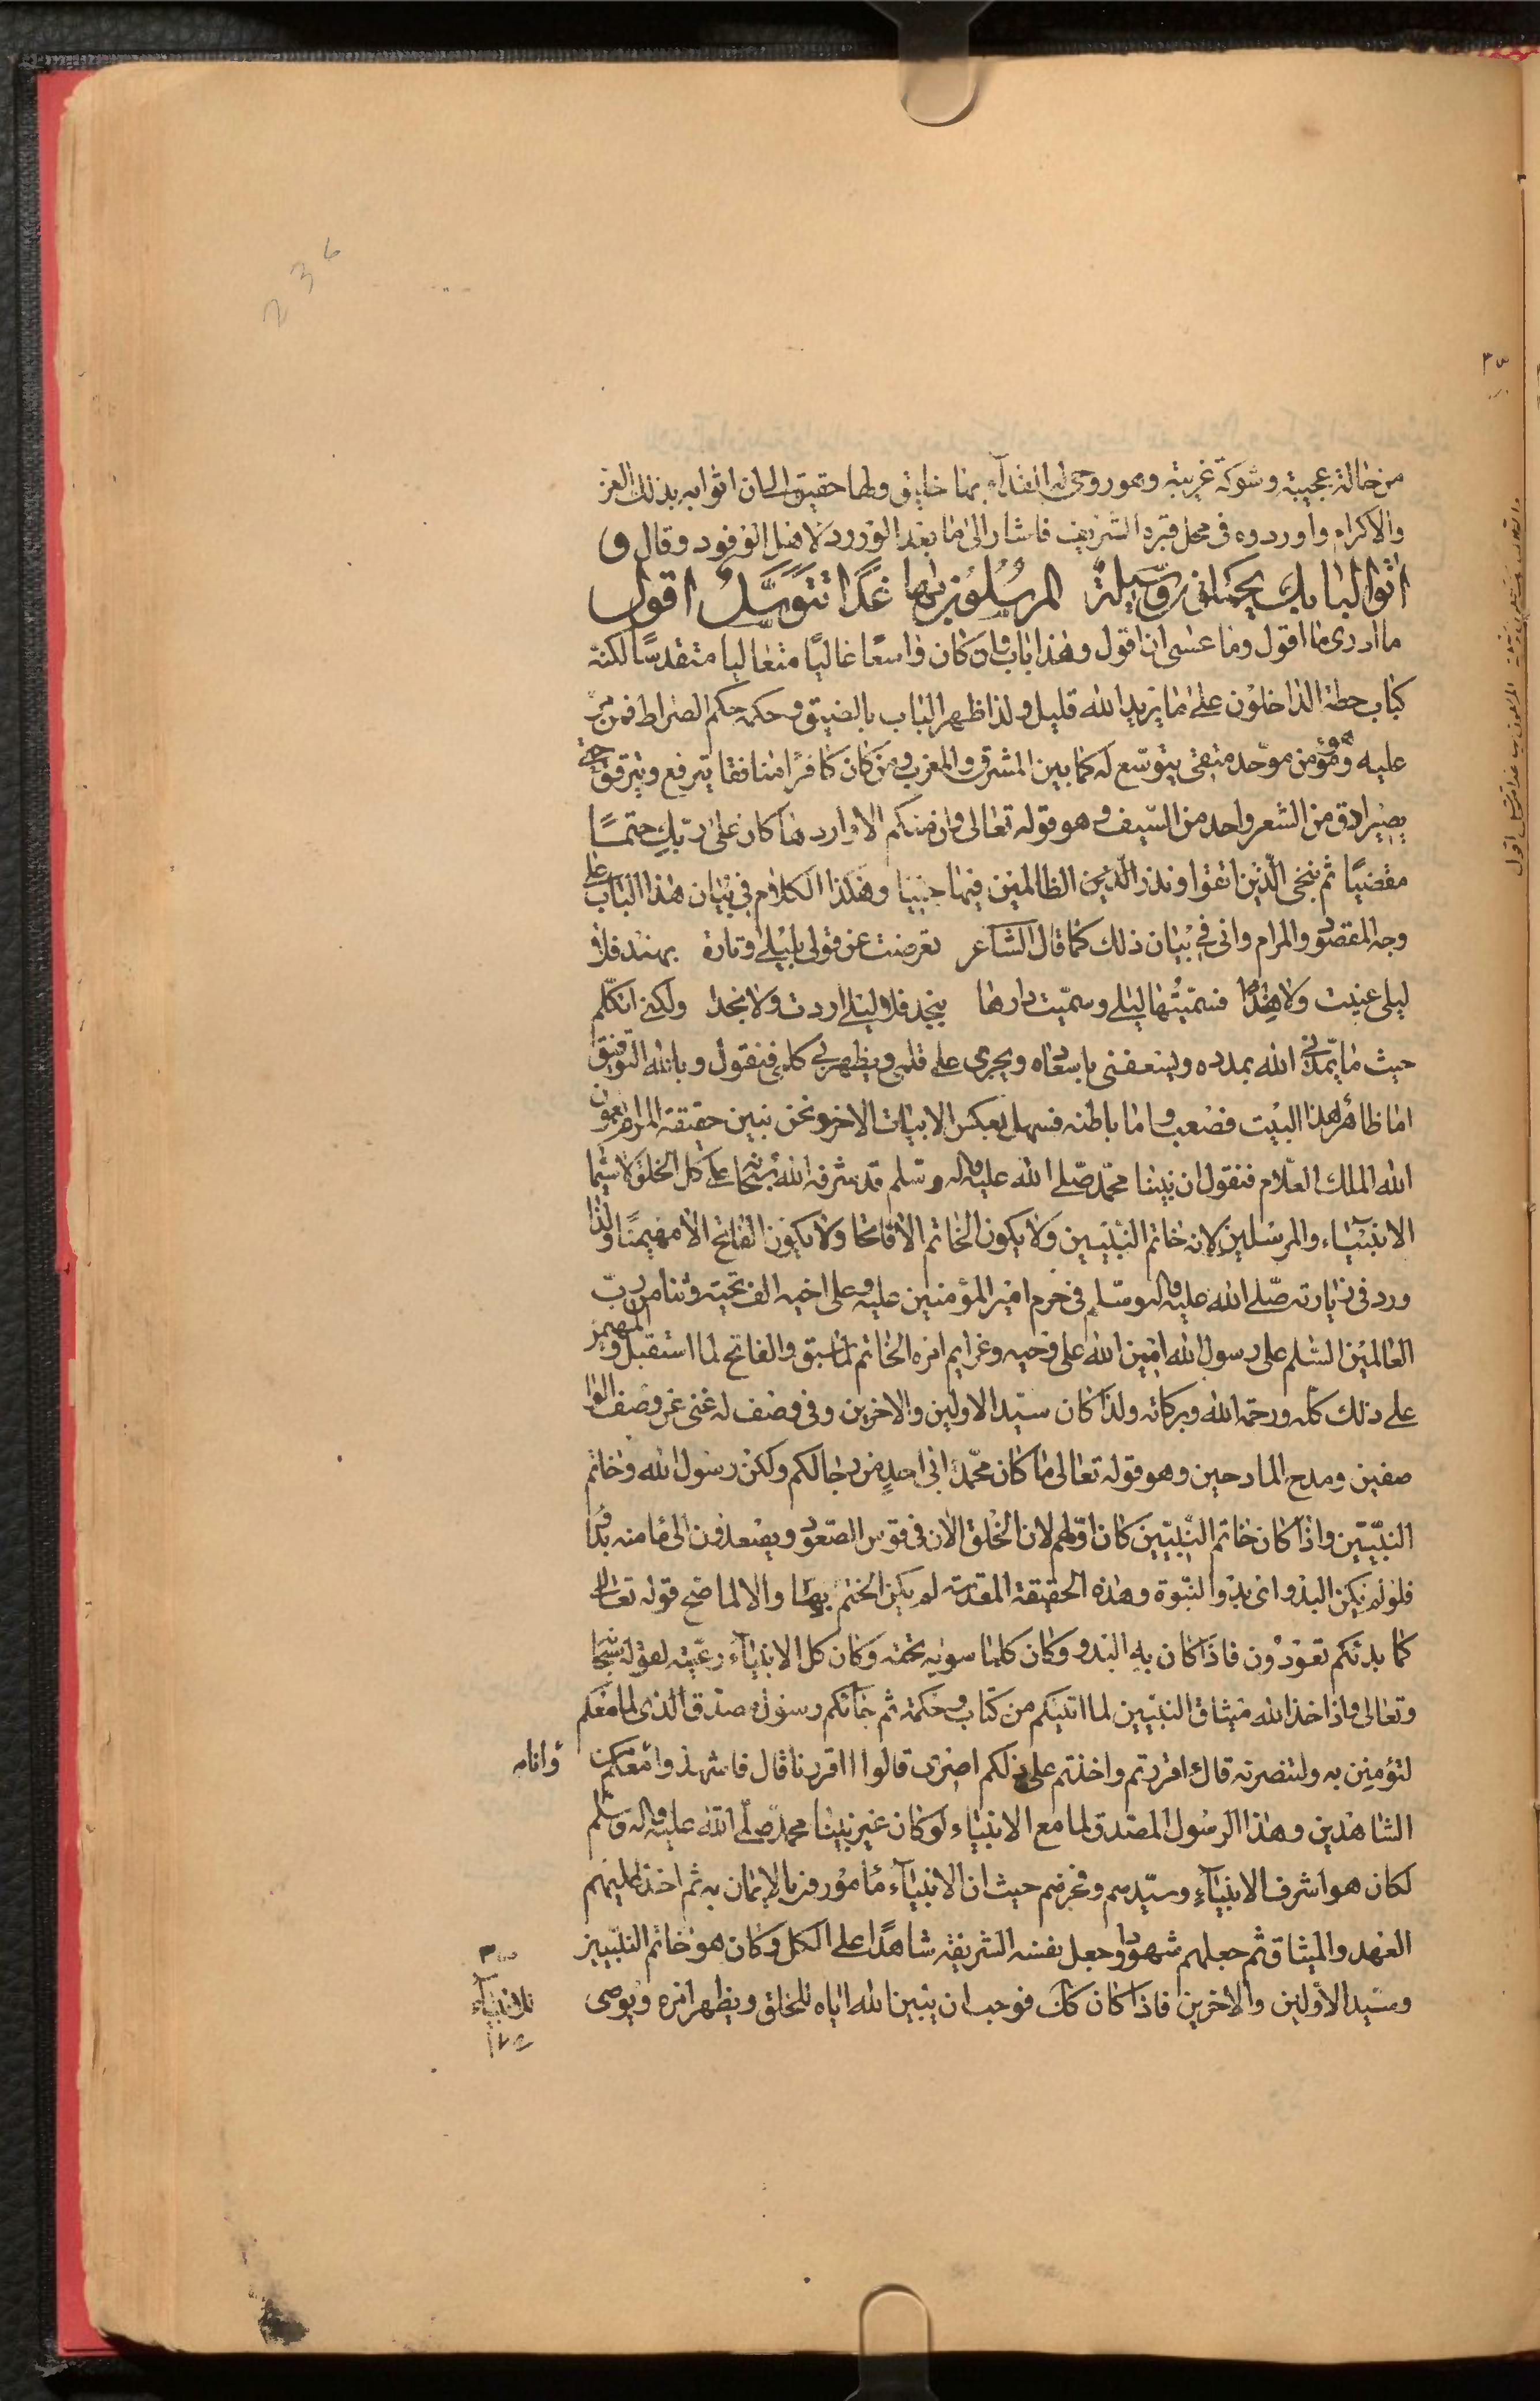 من حالة عجيبة وشوكة غريبة وهو روحي له الفداء بها خليق ولها حقيق الى ان اتوا به بذلك العز
والاكرام واوردوه في محل قبره الشريف فاشار الى ما بعد الورود لاهل الوفود وقال ق
اتوا لبابك يحملني وسيلة المرسلون بها غدا تتوسل اقول
ما ادرى ما اقول وما عسى ان اقول وهذا باب وان كان واسعا عاليا متعاليا متقدسا لكنه
كباب حطة الداخلون على ما يريد الله قليل ولذا ظهر الباب بالضيق وحكمه حكم الصراط فمن مر
عليه وهو مؤمن موحد متقي يتوسع له كما بين المشرق والمغرب ومن كان كافرا منافقا يترفع ويترقق حتى
يصير ادق من الشعر واحد من السيف وهو قوله تعالى وان منكم الا واردها كان على ربك حتما
مقضيا ثم ننجي الذين اتقوا ونذر الظالمين فيها جثيا وهكذا الكلام في بيان هذا الباب على
وجه المقصود والمرام واني في بيان ذلك كما قال الشاعر تعرضت عن قولي بليلى وتارة بهند فلا
ليلى عنيت ولا هندا فسميتها ليلى وسميت دارها بنجد فلا ليلى اردت ولا نجدا ولكني اتكلم
حيث ما يمدني الله بمدده ويسعفني باسعاده ويجرى على قلمي ويظهر في كلامي فنقول وبالله التوفيق
اما ظاهر هذا البيت فصعب واما باطنه فسهل بعكس الابيات الاخر ونحن نبين حقيقة المرام بعون
الله الملك العلام فنقول ان نبينا محمد صلى الله عليه واله وسلم قد شرفه الله سبحانه على كل الخلق لا سيما
الانبياء والمرسلين لانه خاتم النبيين ولا يكون الخاتم الا فاتحا ولا يكون الفاتح الا مهيمنا ولذا
ورد في زيارته صلى الله عليه واله وسلم في حرم امير المؤمنين عليه وعلى اخيه الف تحية وثنا من رب
العالمين السلم على رسول الله امين الله على وحيه وعزايم امره الخاتم لما سبق والفاتح لما استقبل والمهيمن
على ذلك كله ورحمة الله وبركاته ولذا كان سيد الاولين والاخرين وفي وصف له غنى عن وصف الوا
صفين ومدح المادحين وهو قوله تعالى ما كان محمد ابا احد من رجالكم ولكن رسول الله وخاتم
النبيين واذا كان خاتم النبيين كان اولهم لان الخلق الان في قوس الصعود ويصعدون الى ما منه بدؤا
فلو لم يكن البدو اى بدو النبوة وهذه الحقيقة المقدسة لم يكن الختم بهما والا لما صح قوله تعالى
كما بدئكم تعودون فاذا كان به البدو وكان كلما سويه تحته وكان كل الانبياء رعيته لقوله سبحا
وتعالى واذ اخذ الله ميثاق النبيين لما اتيتكم من كتاب وحكمة ثم جائكم رسول مصدق الذى لما معكم
لتؤمنن به ولتنصرنه قال ءاقررتم واخذتم على ذلكم اصرى قالوا اقررنا قال فاشهدوا وانا معكم من
الشاهدين وهذا الرسول المصدق لما مع الانبياء لو كان غير نبينا محمد صلى الله عليه واله وسلم
لكان هو اشرف الانبياء وسيدهم وفخرهم حيث ان الانبياء مامورون بالايمان به ثم اخذ عليهم
العهد والميثاق ثم جعلهم شهودا وجعل نفسه الشريفة شاهدا على الكل وكان هو خاتم النبيين
وسيد الاولين والاخرين فاذا كان كك فوجب ان يبين الله اياه للخلق ويظهر امره ويوصى
وانا به
للانبياء